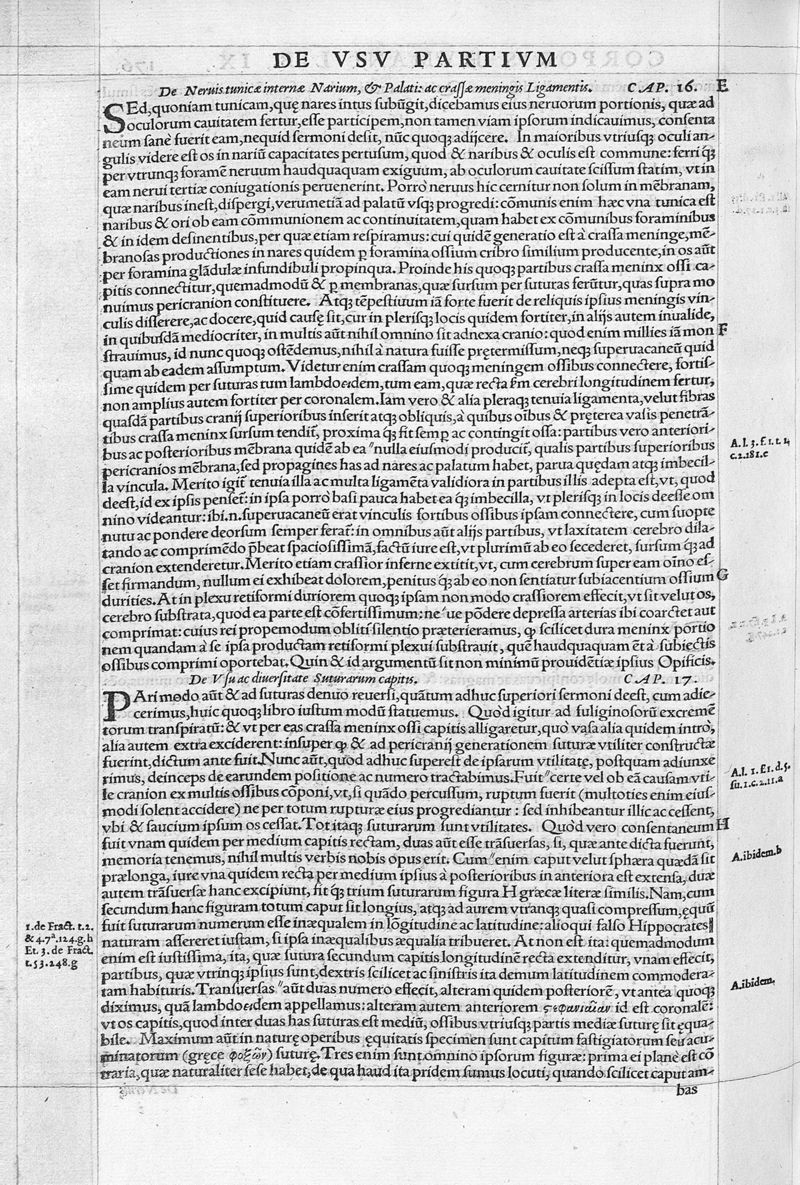 DE VSV PARTIVM
De Neruis tunicæ internæ Narium, & Palati: ac crassæ meningis Ligamentis. CAP. 16. E
SEd, quoniam tunicam, quę nares intus subūgit, dicebamus eius neruorum portionis, quæ ad
oculorum cauitatem fertur, esse participem, non tamen viam ipsorum indicauimus, consenta
neum sanè fuerit eam, nequid sermoni desit, nūc quoqꝫ adijcere. In maioribus vtriusqꝫ oculi an-
gulis videre est os in nariū capacitates pertusum, quod & naribus & oculis est commune: ferri qꝫ
per vtrunqꝫ foramē neruum haudquaquam exiguum, ab oculorum cauitate scissum statim, vt in
eam nerui tertiæ coniugationis peruenerint. Porrò neruus hic cernitur non solum in mēbranam,
quæ naribus inest, dispergi, verumetiā ad palatū vsqꝫ progredi: cōmunis enim hæc vna tunica est
naribus & ori ob eam cōmunionem ac continuitatem, quam habet ex cōmunibus foraminibus
& in idem desinentibus, per quæ etiam respiramus: cui quidē generatio est à crassa meninge, mē-
branosas productiones in nares quidem ꝑ foramina ossium cribro similium producente, in os aūt
per foramina glādulæ infundibuli propinqua. Proinde his quoqꝫ partibus crassa meninx ossi ca-
pitis connectitur, quemadmodū & ꝑ membranas, quæ sursum per suturas ferūtur, quas supra mo
nuimus pericranion constituere. Atqꝫ tēpestiuum iā forte fuerit de reliquis ipsius meningis vin-
culis disserere, ac docere, quid causę sit, cur in plerisqꝫ locis quidem fortiter, in alijs autem inualide,
in quibusdā mediocriter, in multis aūt nihil omnino sit adnexa cranio: quod enim millies iā mon F
strauimus, id nunc quoqꝫ ostēdemus, nihil à natura fuisse prętermissum, neqꝫ superuacaneū quid
quam ab eadem assumptum. Videtur enim crassam quoqꝫ meningem ossibus connectere, fortis-
sime quidem per suturas tum lambdoeidem, tum eam, quæ recta ẜm cerebri longitudinem fertur,
non amplius autem fortiter per coronalem. Iam vero & alia pleraqꝫ tenuia ligamenta, velut fibras
quasdā partibus cranij superioribus inserit atqꝫ obliquis, à quibus oībus & pręterea vasis penetrā-
tibus crassa meninx sursum tendit̄, proxima qꝫ fit semꝑ ac contingit ossa: partibus vero anteriori-
bus ac posterioribus mēbrana quidē ab ea "nulla eiusmodi producit̄, qualis partibus superioribus
pericranios mēbrana, sed propagines has ad nares ac palatum habet, parua quędam atqꝫ imbecil-
la vincula. Merito igit̄ tenuia illa ac multa ligamēta validiora in partibus illis adepta est, vt, quod
deest, id ex ipsis penset̄: in ipsa porrò basi pauca habet ea qꝫ imbecilla, vt plerisqꝫ in locis deesse om
nino videantur: ibi.n. superuacaneū erat vinculis fortibus ossibus ipsam connectere, cum suopte
nutu ac pondere deorsum semper ferat̄: in omnibus aūt alijs partibus, vt laxitatem cerebro dila-
tando ac comprimēdo p̄beat spaciosissimā, factū iure est, vt plurimū ab eo secederet, sursum qꝫ ad
cranion extenderetur. Merito etiam crassior inferne extitit, vt, cum cerebrum super eam oīno es-
set firmandum, nullum ei exhibeat dolorem, penitus qꝫ ab eo non sentiatur subiacentium ossium G
durities. At in plexu retiformi duriorem quoqꝫ ipsam non modo crassiorem effecit, vt sit velut os,
cerebro substrata, quod ea parte est cōfertissimum: ne "ue pōdere depressa arterias ibi coarctet aut
comprimat: cuius rei propemodum obliti silentio præterieramus, ꝙ scilicet dura meninx portio
nem quandam à se ipsa productam retiformi plexui substrauit, quē haudquaquam ēt à subiectis
ossibus comprimi oportebat. Quin & id argumentū sit non minimū prouidētiæ ipsius Opificis.
De Vsu ac diuersitate Suturarum capitis. CAP. 17.
PAri modo aūt & ad suturas denuo reuersi, quātum adhuc superiori sermoni deest, cum adie-
cerimus, huic quoqꝫ libro iustum modū statuemus. Quòd igitur ad fuliginosorū excremē
torum transpiratū: & vt per eas crassa meninx ossi capitis alligaretur, quò vasa alia quidem intrò,
alia autem extra exciderent: insuper ꝙ & ad pericranij generationem suturæ vtiliter constructæ
fuerint, dictum ante fuit. Nunc aūt, quod adhuc superest de ipsarum vtilitate, postquam adiunxe
rimus, deinceps de earundem positione ac numero tractabimus. Fuit "certe vel ob eā causam vti-
le cranion ex multis ossibus cōponi, vt, si quādo percussum, ruptum fuerit (multoties enim eius-
modi solent accidere) ne per totum rupturæ eius progrediantur : sed inhibeantur illic ac cessent,
vbi & saucium ipsum os cessat. Tot itaqꝫ suturarum sunt vtilitates. Quòd vero consentaneum H
fuit vnam quidem per medium capitis rectam, duas aūt esse trāsuersas, si, quæ ante dicta fuerunt,
memoria tenemus, nihil multis verbis nobis opus erit. Cum "enim caput velut sphæra quædā sit
prælonga, iure vna quidem recta per medium ipsius à posterioribus in anteriora est extensa, duæ
autem trāsuersæ hanc excipiunt, fit qꝫ trium suturarum figura H græcæ literæ similis. Nam, cum
secundum hanc figuram totum caput sit longius, atqꝫ ad aurem vtranqꝫ quasi compressum, ęquū
fuit suturarum numerum esse inæqualem in lōgitudine ac latitudine: alioqui falso Hippocrates
naturam assereret iustam, si ipsa inæqualibus æqualia tribueret. At non est ita: quemadmodum
enim est iustissima, ita, quæ sutura secundum capitis longitudinē recta extenditur, vnam effecit,
partibus, quæ vtrinqꝫ ipsius sunt, dextris scilicet ac sinistris ita demum latitudinem commodera-
tam habituris. Transuersas "aūt duas numero effecit, alteram quidem posteriorē, vt antea quoqꝫ
diximus, quā lambdoeidem appellamus: alteram autem anteriorem ϛεφανιαίαν id est coronalē:
vt os capitis, quod inter duas has suturas est mediū, ossibus vtriusqꝫ partis mediæ suturę sit ęqua-
bile. Maximum aūt in naturę operibus ęquitatis specimen sunt capitum fastigiatorum seu acu-
minatorum (gręce φοξῶν) suturę. Tres enim sunt omnino ipsorum figuræ: prima ei planè est cō
traria, quæ naturaliter sese habet, de qua haud ita pridem sumus locuti, quando scilicet caput am-
bas
A.l. 3. f. 1. t. 4
c. 2. 181. c
A.l. 1. f. 1. d. 5.
su. 1. c. 2. 11. a
A. ibidem. b
1. de Fract. t. 2.
& 4. 7ª. 124. g. h
Et. 3. de Fract.
t. 53. 248. g
A. ibidem.